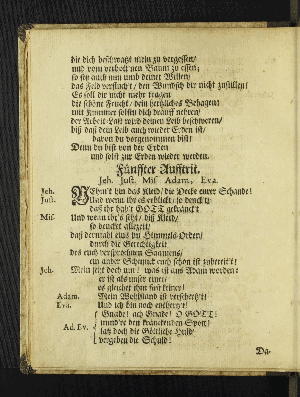 die dich beschwatzt mein zu vergessen/
und vom verbottnen Baum zu essen;
so sey auch nun umb deinet Willen/
das Feld verflucht/ den Wunsch dir nicht zustillen/
Es soll dir nicht mehr tragen
die schöne Frucht/ dein hertzliches Behagen:
mit Kummer solstu dich drauff nehren/
der Arbeit-Last wird deinen Leib beschweren/
biß daß dein Leib auch wieder Erden ist/
davon du vorgenommen bist!
Denn du bist von der Erden
und solst zur Erden wieder werden.
Fünffter Aufftrit.
Jeh. Just. Mis. Adam, Eva.
Jeh. Nehm't hin das Kleid/ die Decke eurer Schande!
Just. Und wenn ihr es erblickt/ so denck't/
daß ihr habt GOTT gekränck't
Mis. Und wenn ihr's seht/ diß Kleid/
so dencket allezeit/
daß dermahl eins ein Himmels-Orden/
durch die Gerechtigkeit
des euch versprochnen Saamens/
ein ander Schmuck euch schon ist zubereit't!
Jeh. Mein seht doch um! was ist aus Adam worden?
er ist als unser einer/
es gleichet ihm fast keiner!
Adam. Mein Wohlstand ist verschertz't!
Eva. Und ich bin noch
Ad. Ev. Gnade! ach Gnade! O GOTT!
den kränckenden Spott/
laß doch die Göttliche Huld/
vergeben die Schuld!
Da-